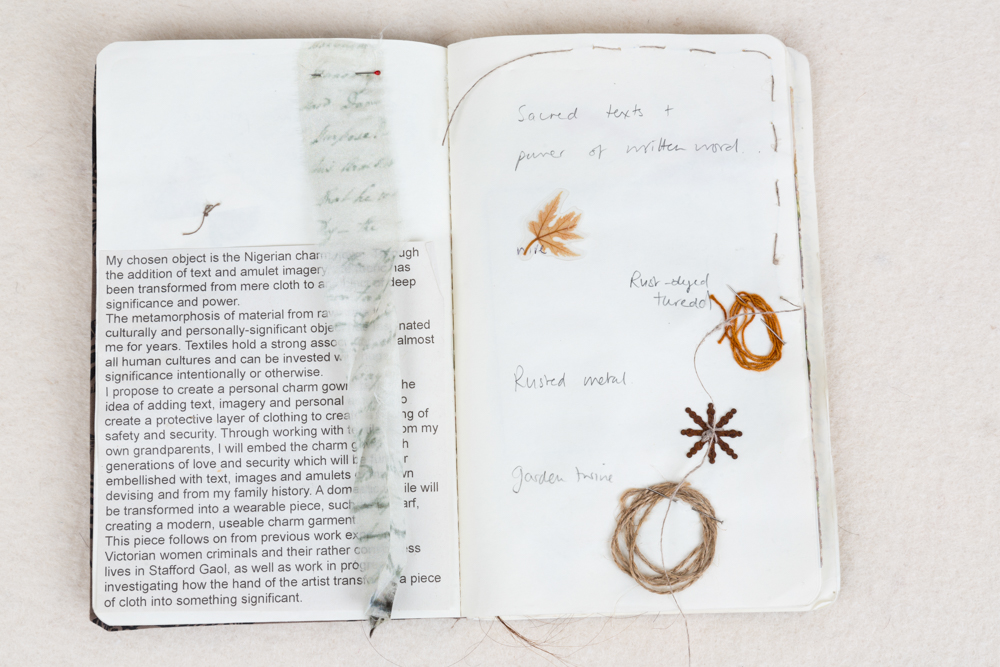 But he
Upon the
My chosen object is the Nigerian charm
the addition of text and amulet imagery has
been transformed from mere cloth to a deep
significance and power.
The metamorphosis of material from raw
culturally and personally-significant obje nated
me for years. Textiles hold a strong asso almost
all human cultures and can be invested w
significance intentionally or otherwise.
I propose to create a personal charm gown the
idea of adding text, imagery and personal to
create a protective layer of clothing to crea ng of
safety and security. Through working with t om my
own grandparents, I will embed the charm g h
generations of love and security which will b er
embellished with text, images and amulets wn
devising and from my family history. A dome ile will
be transformed into a wearable piece, such arf,
creating a modern, useable charm garment
This piece follows on from previous work ex
Victorian women criminals and their rather co ess
lives in Stafford Gaol, as well as work in prog
investigating how the hand of the artist transf a piece
of cloth into something significant.
Sacred texts +
power of written word..
Rust-dyed
thread
Rusted metal
garden twine